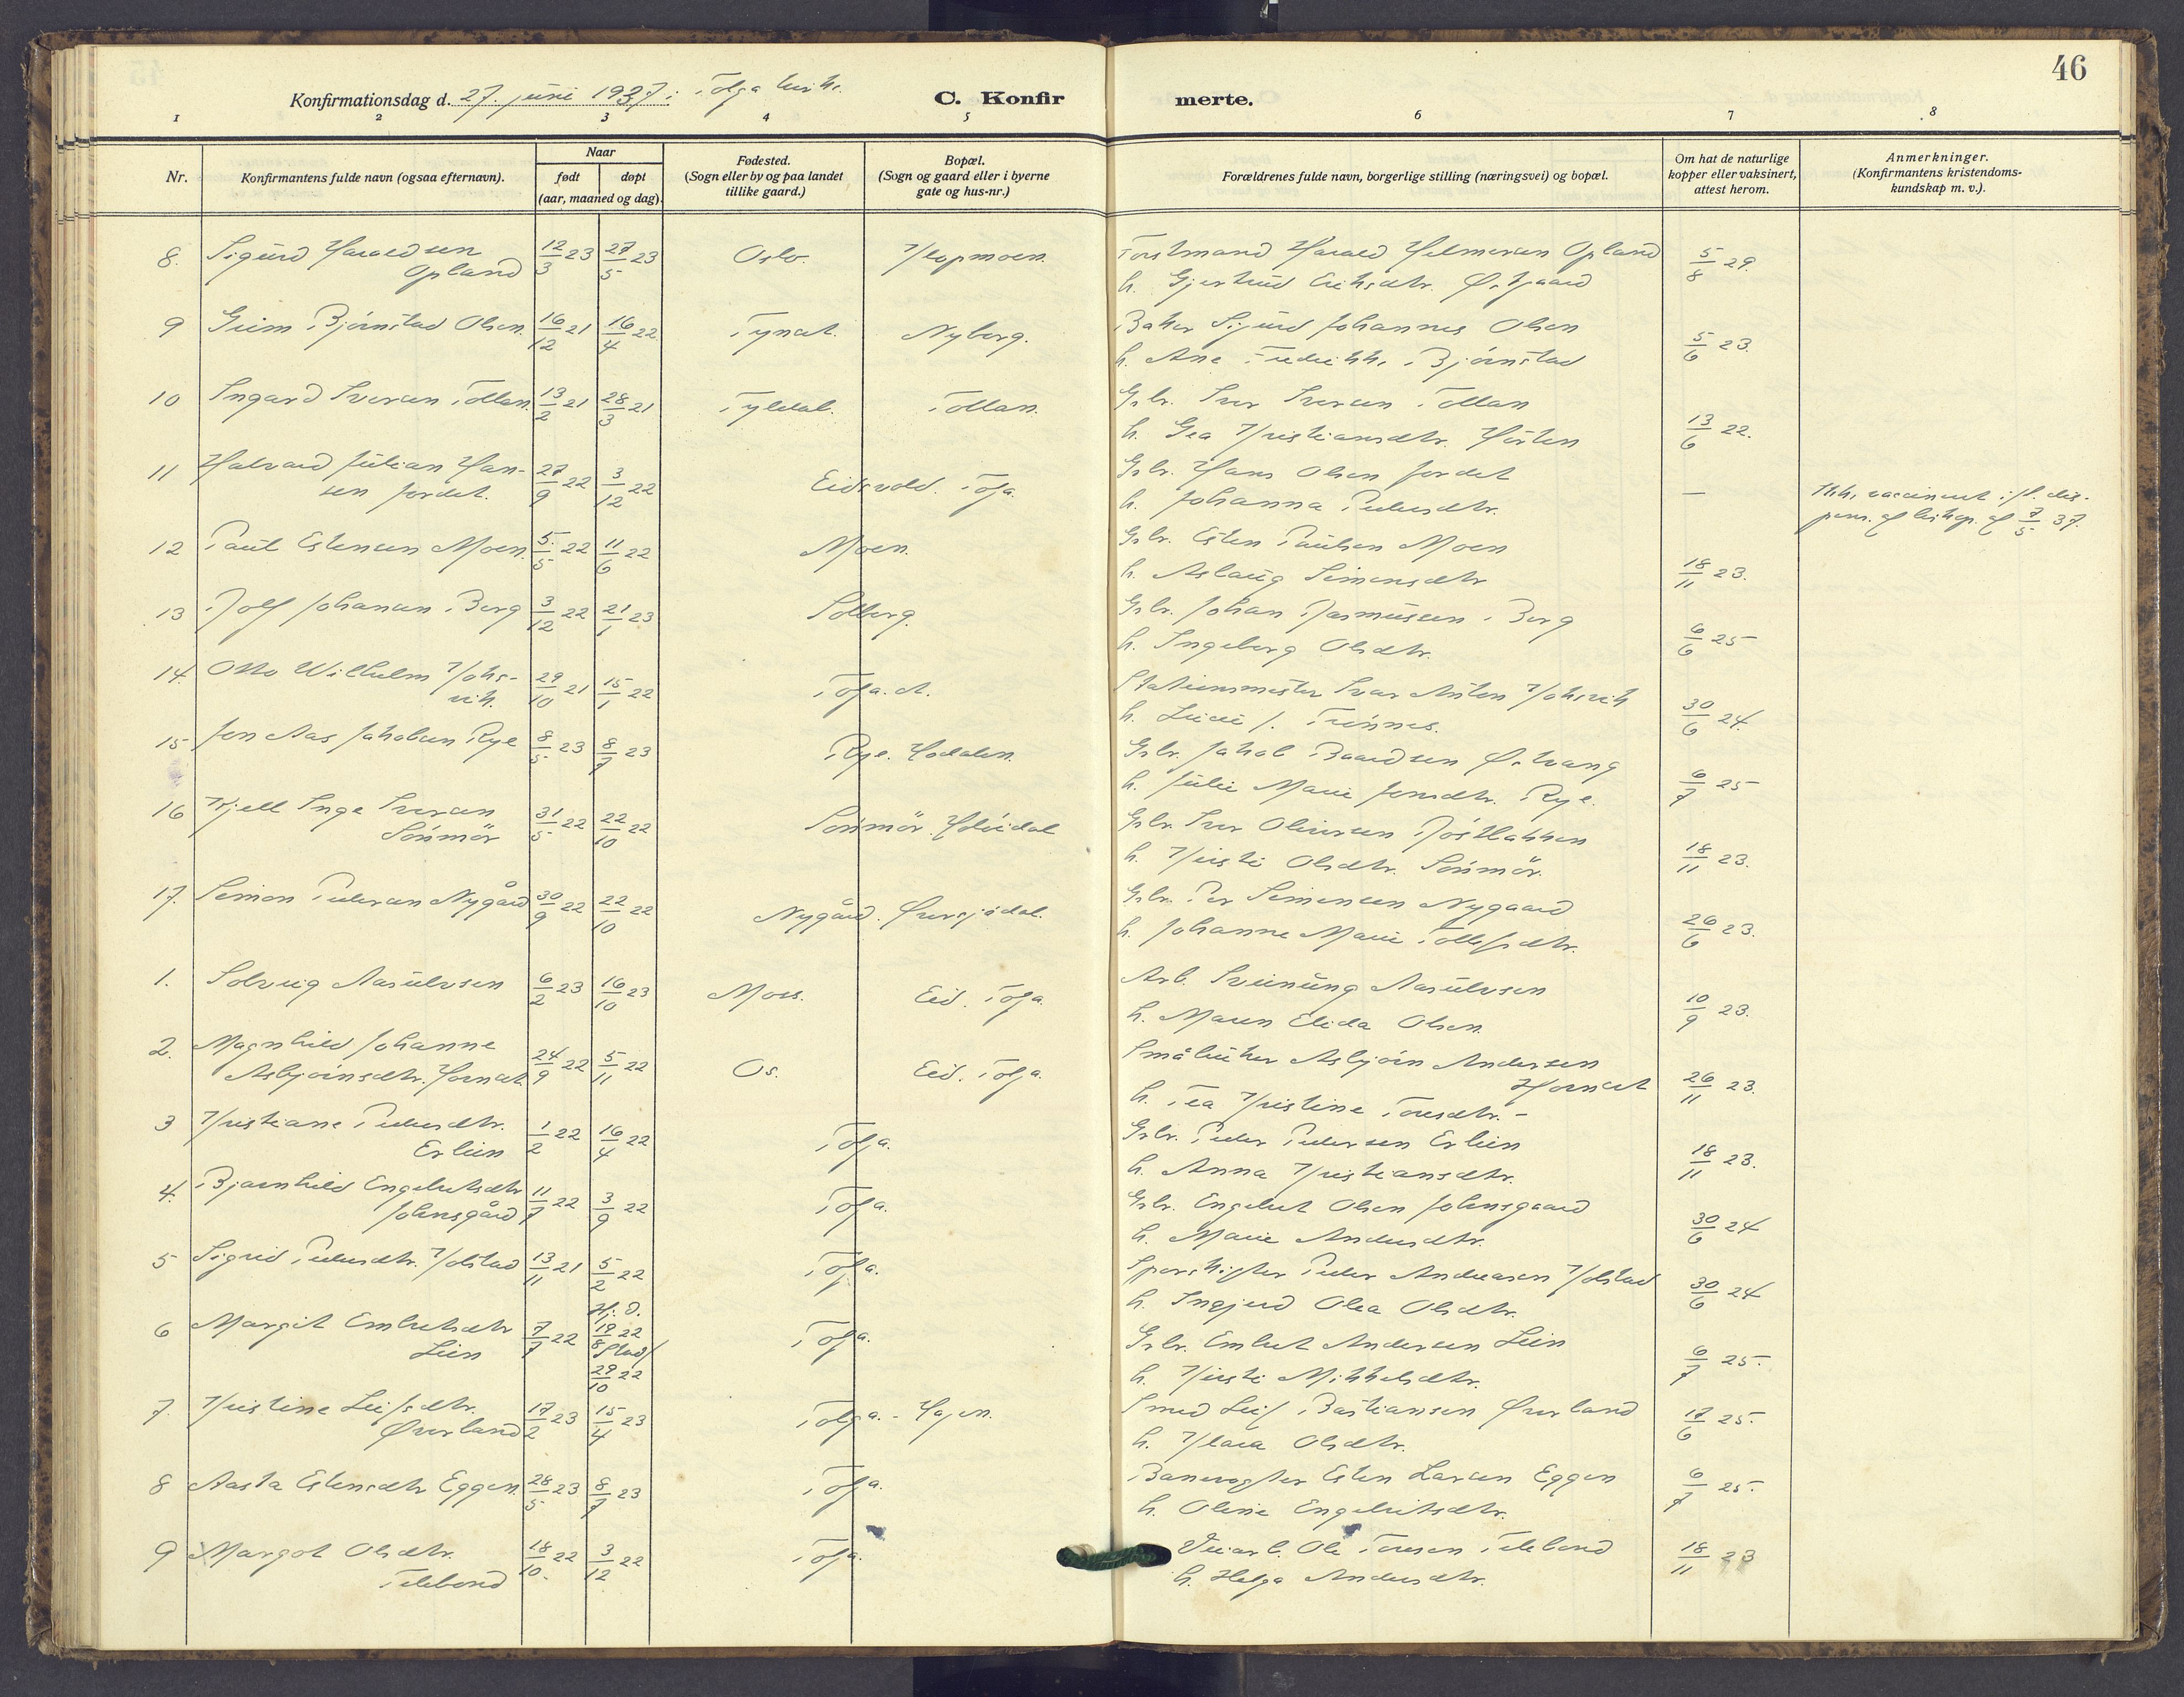 46
Konfirmationsdag d. 27. juni 1937 i Tolga kirke.
C. Konfirmerte.
1 2 3 4 5 6 7 8
Nr.
Konfirmantens fulde navn (ogsaa efternavn).
Naar
født døpt
(aar, maaned og dag).
Fødested.
(Sogn eller by og paa landet
tillike gaard.)
Bopæl.
(Sogn og gaard eller i byerne
gate og hus-nr.)
Forældrenes fulde navn, borgerlige stilling (næringsvei) og bopæl.
Om hat de naturlige
kopper eller vaksinert,
attest herom.
Anmerkninger.
(Konfirmantens kristendoms-
kundskap m. v.).
8. Sigurd Haraldsen 12/3 23 27/5 23 Oslo. Harald Opland 5/8 29.
Opland h. Gjertrud Eriksdtr.
9 Bjørnstad Olsen. 16/12 21 16/4 22 Tynset. Nyberg. Baker Sigurd Johannes Olsen 5/6 23.
h. Ane Bjørnstad
10 Ingard Iversen Tollan. 13/2 21 28/3 21 Tyldal. Tollan. Grbr. Iver Iversen Tollan 13/6 22.
h. Gea Kristiansdtr.
11 Halvard Julian Han- 27/9 22 3/12 22 Eidsvold. Tolga. Grbr. Hans Olsen Jordet —
sen Jordet. h. Johanna Pedersdtr.
Ikke vaccinert if. dis-
pens. af biskop. af 7/5 37.
12 Paul Estensen Moen. 5/5 22 11/6 22 Moen. Grbr. Esten Paulsen Moen 18/11 23.
h. Aslaug Simensdtr
13 Rolf Johansen Berg 3/12 22 21/1 23 Solberg. Grbr. Johan Rasmussen Berg 6/6 25
h. Ingeborg Olsdtr.
14. Otto Wilhelm Koks- 29/10 21 15/1 22 Tolga. st. Stationsmester Ivar Anton Koksvik 30/6 24.
vik. h. J. Trønnes.
15 Jon Aas Jakobsen Rye 8/5 23 8/7 23 Rye. Hodalen. Grbr. Jakob Baardsen Østvang 6/7 25
h. Julie Marie Jonsdtr. Rye.
16 Kjell Inge Iversen 31/5 22 22/10 22 Sørimør. Holøidal Grbr. Iver Oliversen 18/11 23.
Sørimør h. Kirsti Olsdtr. Sørimør.
17. Simon Pedersen Nygård 30/9 22 22/10 22 Nygård. Øversjødal. Grbr. Per Simensen Nygaard 26/6 23.
h. Johanne Marie Tollefsdtr.
1. Solveig Aasulvsen 6/2 23 16/10 23 Moss. Eid. Tolga. Arb. Sveinung Aasulvsen 10/9 23.
h. Maren Elida Olsen.
2. Magnhild Johanne 24/9 22 5/11 22 Os. Eid. Tolga. Småbruker Asbjørn Andersen 26/11 23.
Asbjørnsdtr. Hornset Hornset
h. Tea Kristine Toresdtr. -
3 Kristiane Pedersdtr. 1/2 22 16/4 22 Tolga. Grbr. Peder Pedersen Erlien 18/11 23.
Erlien h. Anna Kristiansdtr.
4. Bjarnhild Engebretsdtr 11/7 22 3/9 22 Tolga. Grbr. Engebret Olsen Johnsgaard 30/6 24
Johnsgård h. Marie Andersdtr.
5 Sigrid Pedersdtr. Kolstad 13/11 21 5/2 22 Tolga. Sporskifter Peder Andreasen Kolstad 30/6 24
h. Ingjerd Olea Olsdtr.
6 Margit Embretsdtr 7/7 22 Hj. d. 19/8 22 Stad/ 29/10 22 Tolga. Grbr. Embret Andersen Lien 6/7 25.
Lien h. Kirsti Mikkelsdtr.
7. Kristine Leifsdtr. 17/2 23 15/4 23 Tolga. - Hagen. Smed Leif Bastiansen Øverland 17/6 25.
Øverland h. Klara Olsdtr.
8 Aasta Estensdtr Eggen. 28/5 23 8/7 23 Tolga. Banevogter Esten Larsen Eggen 6/7 25.
h. Oline Engebretsdtr.
9 Margot Olsdtr. 18/10 22 3/12 22 Tolga. Veiarb. Ole Toresen Telebond 18/11 23
Telebond h. Helga Andersdtr.